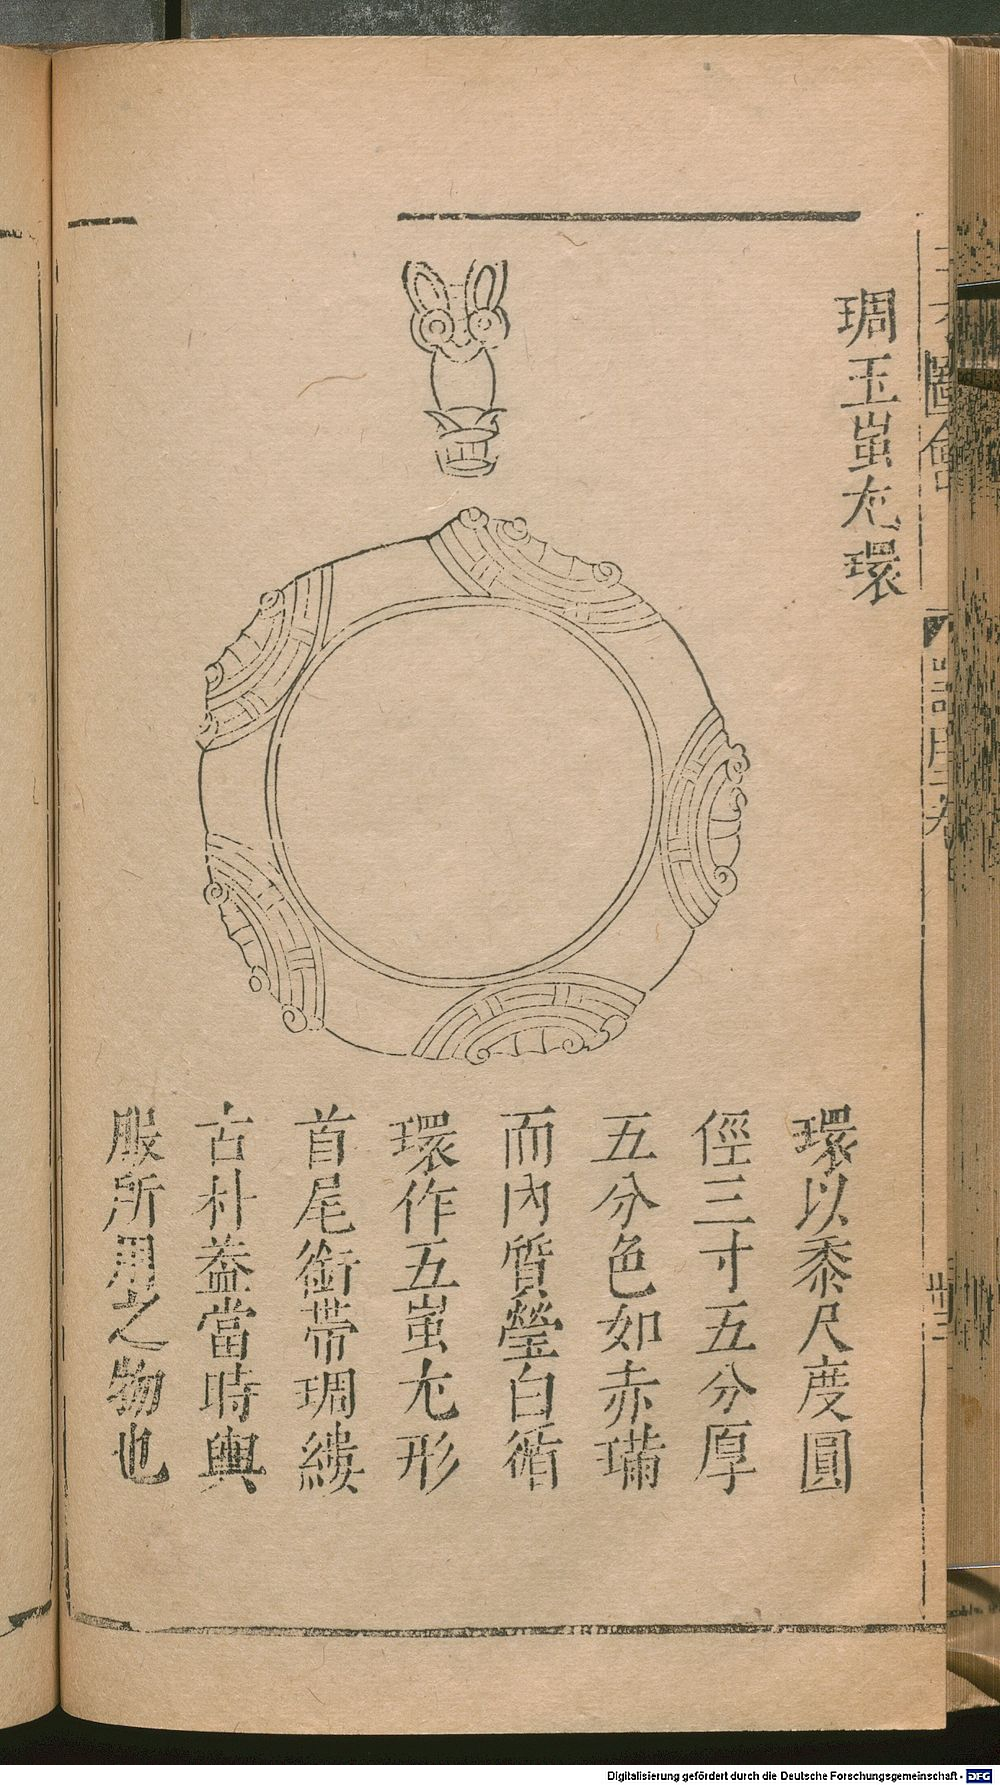 琱玉蚩尤環
環以黍尺度圓
徑三寸五分厚
五分色如赤㻴
而內質瑩白循
環作五蚩尤形
首尾銜帶琱縷
古朴葢當時輿
服所用之物也
圖會
Digitalisierung gefördert durch die Deutsche Forschungsgemeinschaft - DFG